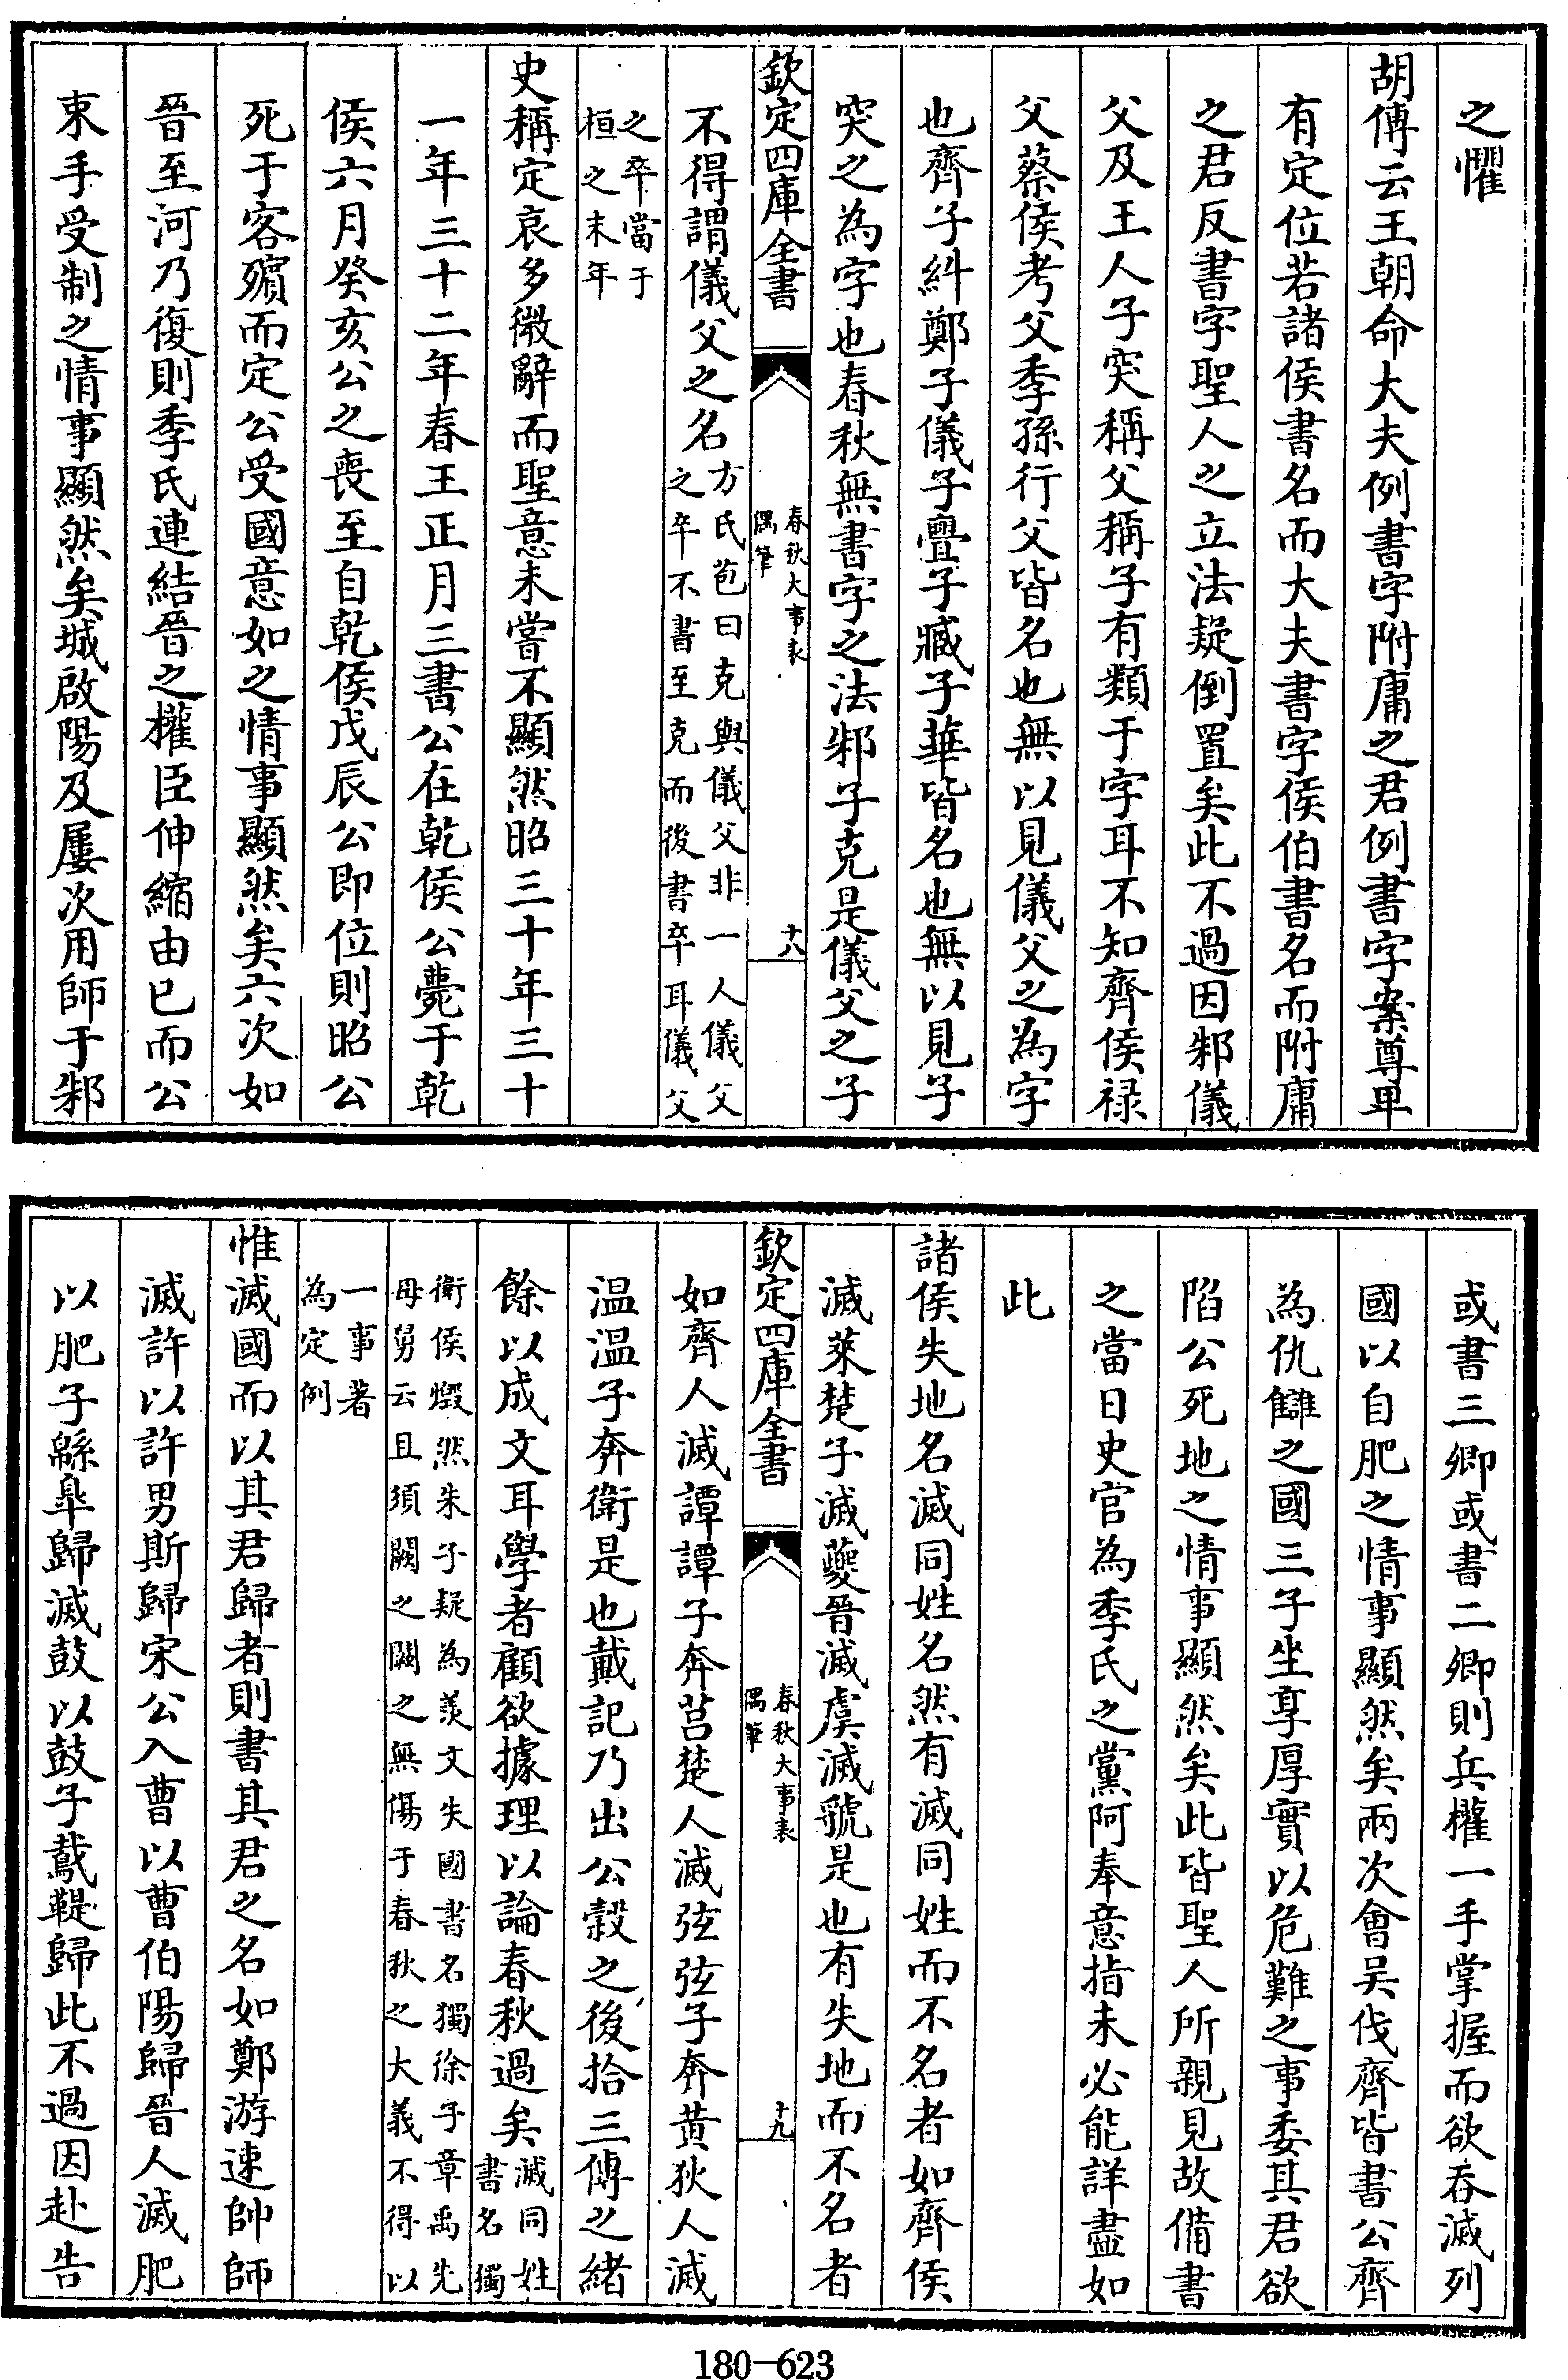 之懼
胡傳云王朝命大夫例書字附庸之君例書字案尊卑
有定位若諸侯書名而大夫書字侯伯書名而附庸
之君反書字聖人之立法疑倒置矣此不過因邾儀
父及王人子突稱父稱子有類于字耳不知齊侯祿
父蔡侯考父季孫行父皆名也無以見儀父之為字
也齊子糾鄭子儀子亹子臧子華皆名也無以見子
突之為字也春秋無書字之法邾子克是儀父之子
欽定四庫全書
春秋大事表
偶筆
十八
不得謂儀父之名方氏苞曰克與儀父非一人儀父
之卒不書至克而後書卒耳儀父
之卒當于
桓之末年
史稱定哀多微辭而聖意未嘗不顯然昭三十年三十
一年三十二年春王正月三書公在乾侯公薨于乾
侯六月癸亥公之喪至自乾侯戊辰公即位則昭公
死于客殯而定公受國意如之情事顯然矣六次如
晉至河乃復則季氏連結晉之權臣伸縮由已而公
束手受制之情事顯然矣城啟陽及屢次用師于邾
或書三卿或書二卿則兵權一手掌握而欲吞滅列
國以自肥之情事顯然矣兩次會吳伐齊皆書公齊
為仇讎之國三子坐享厚實以危難之事委其君欲
陷公死地之情事顯然矣此皆聖人所親見故備書
之當日史官為季氏之黨阿奉意指未必能詳盡如
此
諸侯失地名滅同姓名然有滅同姓而不名者如齊侯
滅萊楚子滅夔晉滅虞滅虢是也有失地而不名者
欽定四庫全書
春秋大事表
偶筆
十九
如齊人滅譚譚子奔莒楚人滅弦弦子奔黃狄人滅
温温子奔衛是也戴記乃出公穀之後拾三傳之緒
餘以成文耳學者顧欲據理以論春秋過矣滅同姓
書名獨
衛侯燬然朱子疑為羨文失國書名獨徐子章禹先
母舅云且須闕之闕之無傷于春秋之大義不得以
一事著
為定例
惟滅國而以其君歸者則書其君之名如鄭游速帥師
滅許以許男斯歸宋公入曹以曹伯陽歸晉人滅肥
以肥子緜臯歸滅鼓以鼓子䳒鞮歸此不過因赴告
180-623